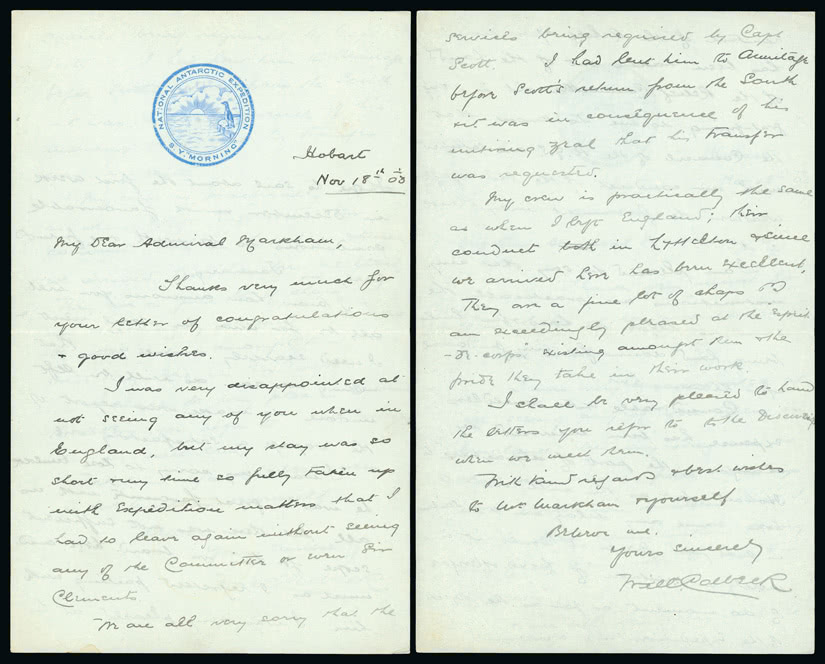 NATIONAL ANTARCTIC EXPEDITION
S.Y. MORNING
Hobart
Nov 18th 03
My Dear Admiral Markham,
Thanks very much for
your letter of congratulations
+ good wishes.
I was very disappointed at
not seeing any of you when in
England, but my stay was so
short + my time so fully taken up
with Expedition matters that I
had to leave again without seeing
any of the Committee or even Sir
Clements
We are all very sorry that the
services being required by Capt
Scott. I had lent him to Armitage
before Scott's return from the South
+ it was in consequence of his
untiring zeal that his transfer
was requested.
My crew is practically the same
as when I left England; their
conduct both in Lyttelton + since
we arrived here has been excellent,
They are a fine lot of chaps + I
am exceedingly pleased at the Esprit
-de-corps existing amongst them + the
pride they take in their work.
I shall be very pleased to hand
the letters you refer to to the Discovery
when we meet them.
With kind regards + best wishes
to Mrs Markham + yourself
Believe me.
Yours sincerely
Will Colbeck